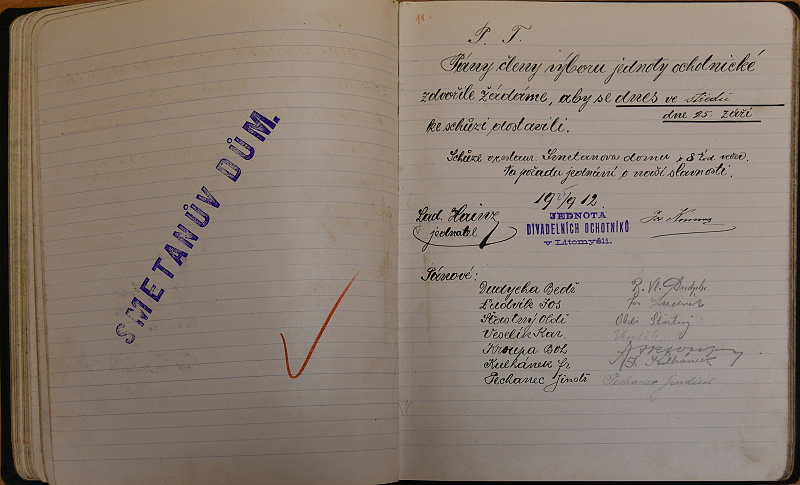 SMETANŮV DŮM.
11.
P. T.
Pány členy výboru jednoty ochotnické
zdvořile žádáme, aby se dnes ve středu
dne 25. září
ke schůzi dostavili.
Schůze v restaur. Smetanova domu v 8 hod. večer.
Na pořadu jednání o naší slavnosti.
19 25/9 12.
Lad. Hainz
jednatel
JEDNOTA
DIVADELNÍCH OCHOTNÍKŮ
v Litomyšli.
Pánové:
Dudycha Bedř
Ludvík Jos
Šťastný Oldř
Veselík Kar.
Kroupa Boh
Kulhánek Fr
Pechanec Jindř
Oldř Šťastný
Fr. Kulhánek
Pechanec Jindřich